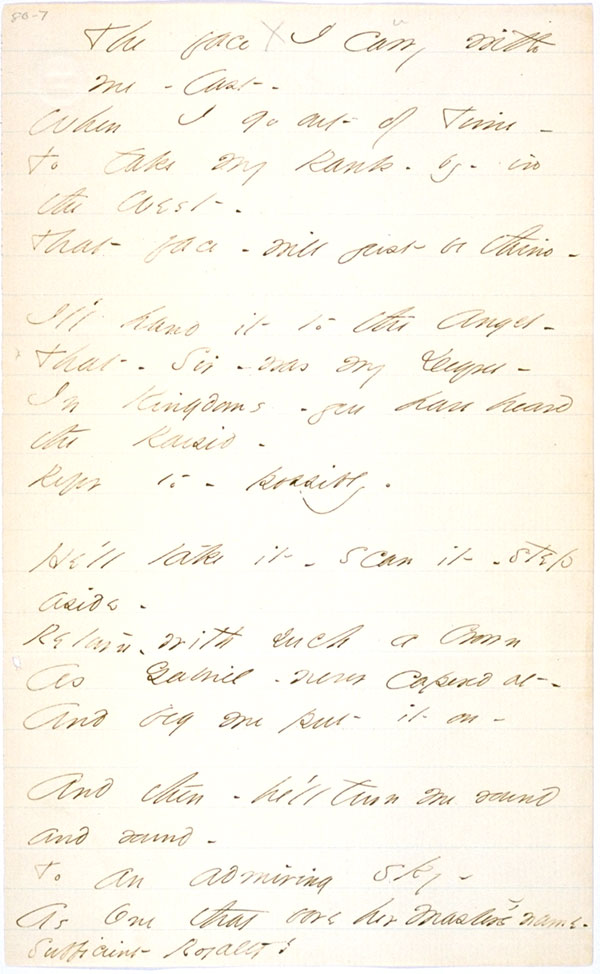 80-7
The face I carry with
me - last -
When I go out of Time -
To take my Rank - by - in
the West -
That face - will just be thine -
I'll hand it to the Angel -
That - Sir - was my Degree -
In Kingdoms - you have heard
the Raised -
Refer to - possibly.
He'll take it - scan it - step
aside -
Return - with such a crown
As Gabriel - never capered at -
And beg me put it on -
And then - he'll turn me round
and round -
To an admiring sky -
As One that bore her Master's name -
Sufficient Royalty!